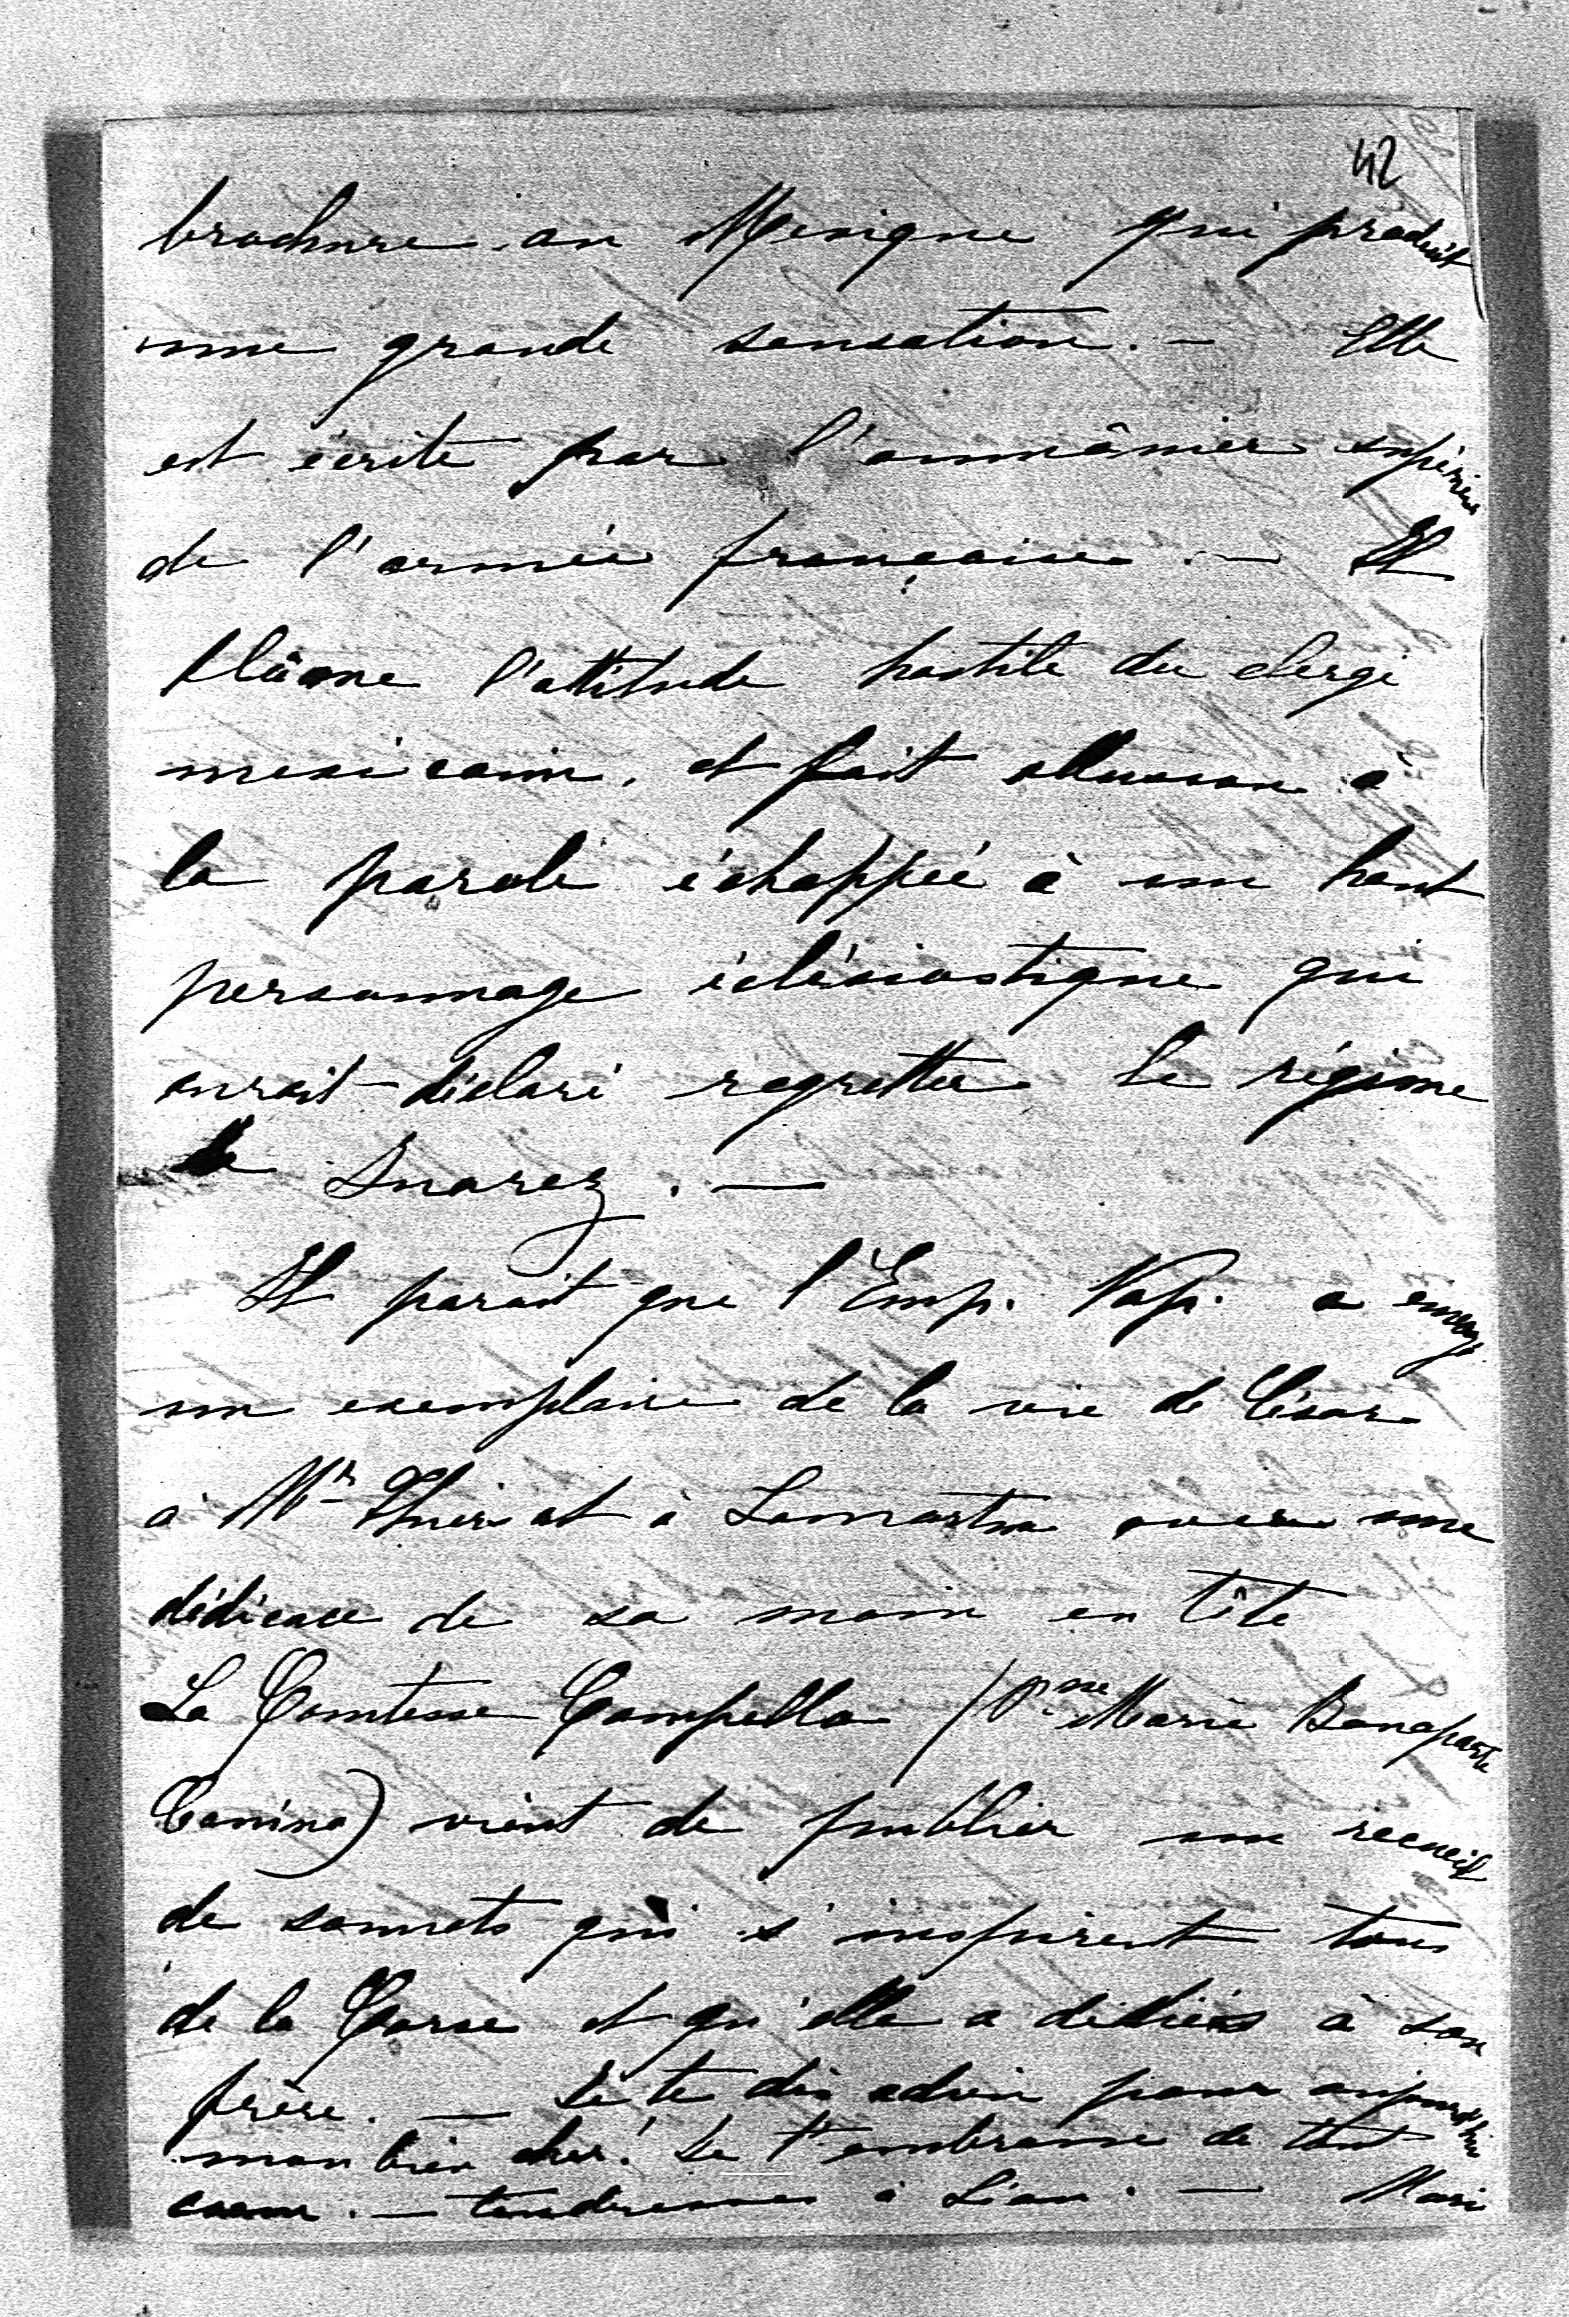 42
brochure au Mexique qui produit
une grande sensation. — Elle
est écrite par l'aumônier supérieur
de l'armée française. — Il
blâme l'attitude hostile du clergé
mexicain, et fait allusion à
la parole échappée à un haut
personnage éclésiastique qui
aurait déclaré regretter le régime
de Juarez. —
Il parait que l'Emp. Nap. a envoyé
un exemplaire de la vie de César
à Mr Thiers et à Lamartine avec une
dédicace de sa main en tête
La Comtesse Campello (Psse Marie Bonaparte
Canino) vient de publier un recueil
de sonnets qui s'inspirent tous
de la Corse et qu'elle a dédiés à son
frère. — Je te dis adieu pour aujourd'hui
mon bien cher! Je t'embrasse de tout
cœur. — tendresses à Léon. — Marie